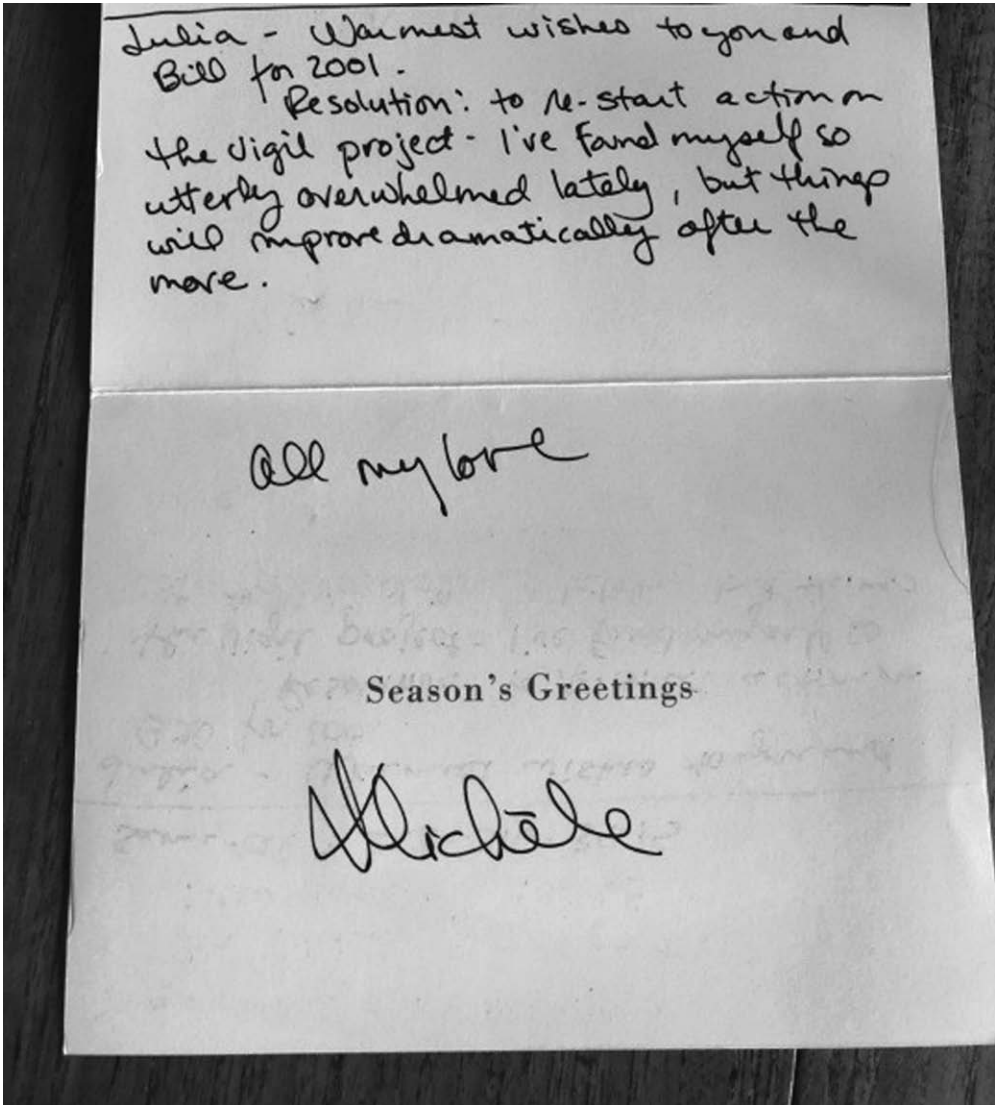 Julia - Warmest wishes to you and
Bill for 2001.
Resolution: to re-start action on
the vigil project - I've found myself so
utterly overwhelmed lately, but things
will improve dramatically after the
move.
All my love
Season's Greetings
Michèle